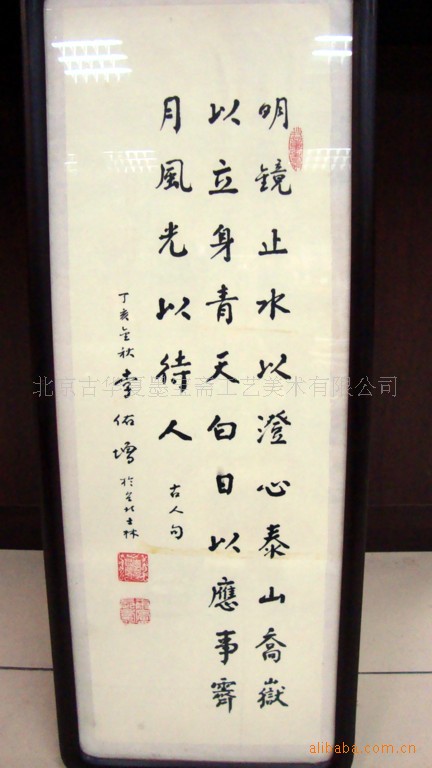 明鏡止水以澄心泰山喬嶽
以立身青天白日以應事霽
月風光以待人
古人句
丁亥金秋李佑增於
士林
北京古华夏墨宝斋工艺美术有限公司
alibaba.com.cn